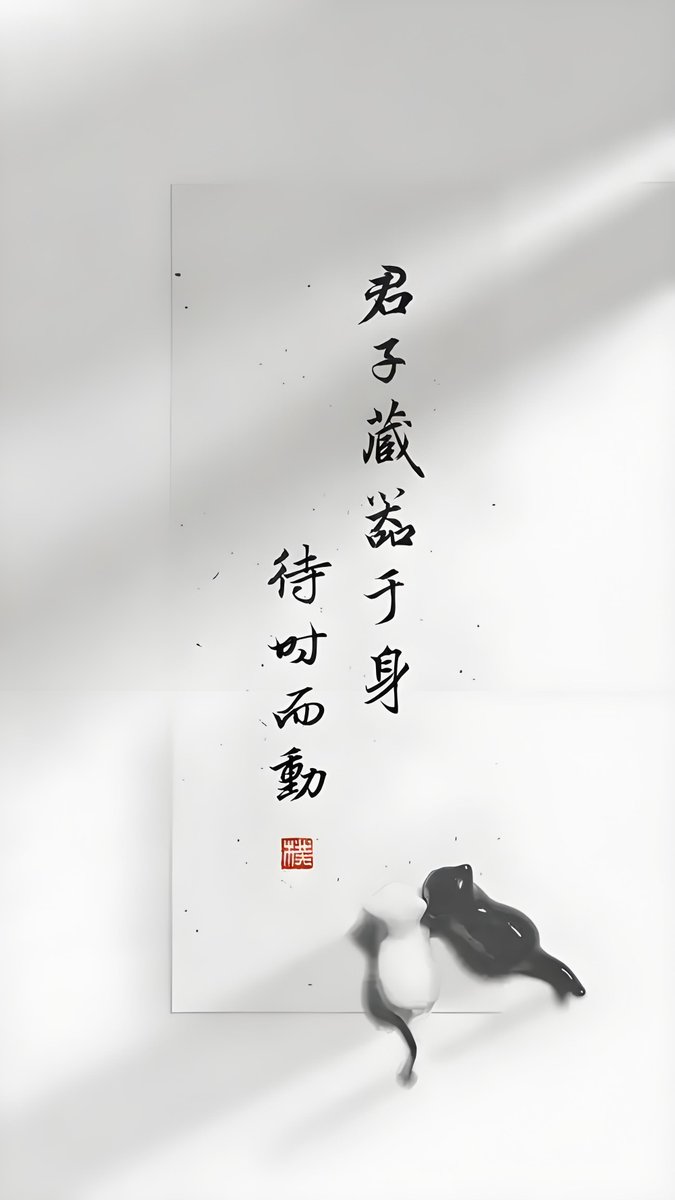 君子蔵器于身
待时而動
樸